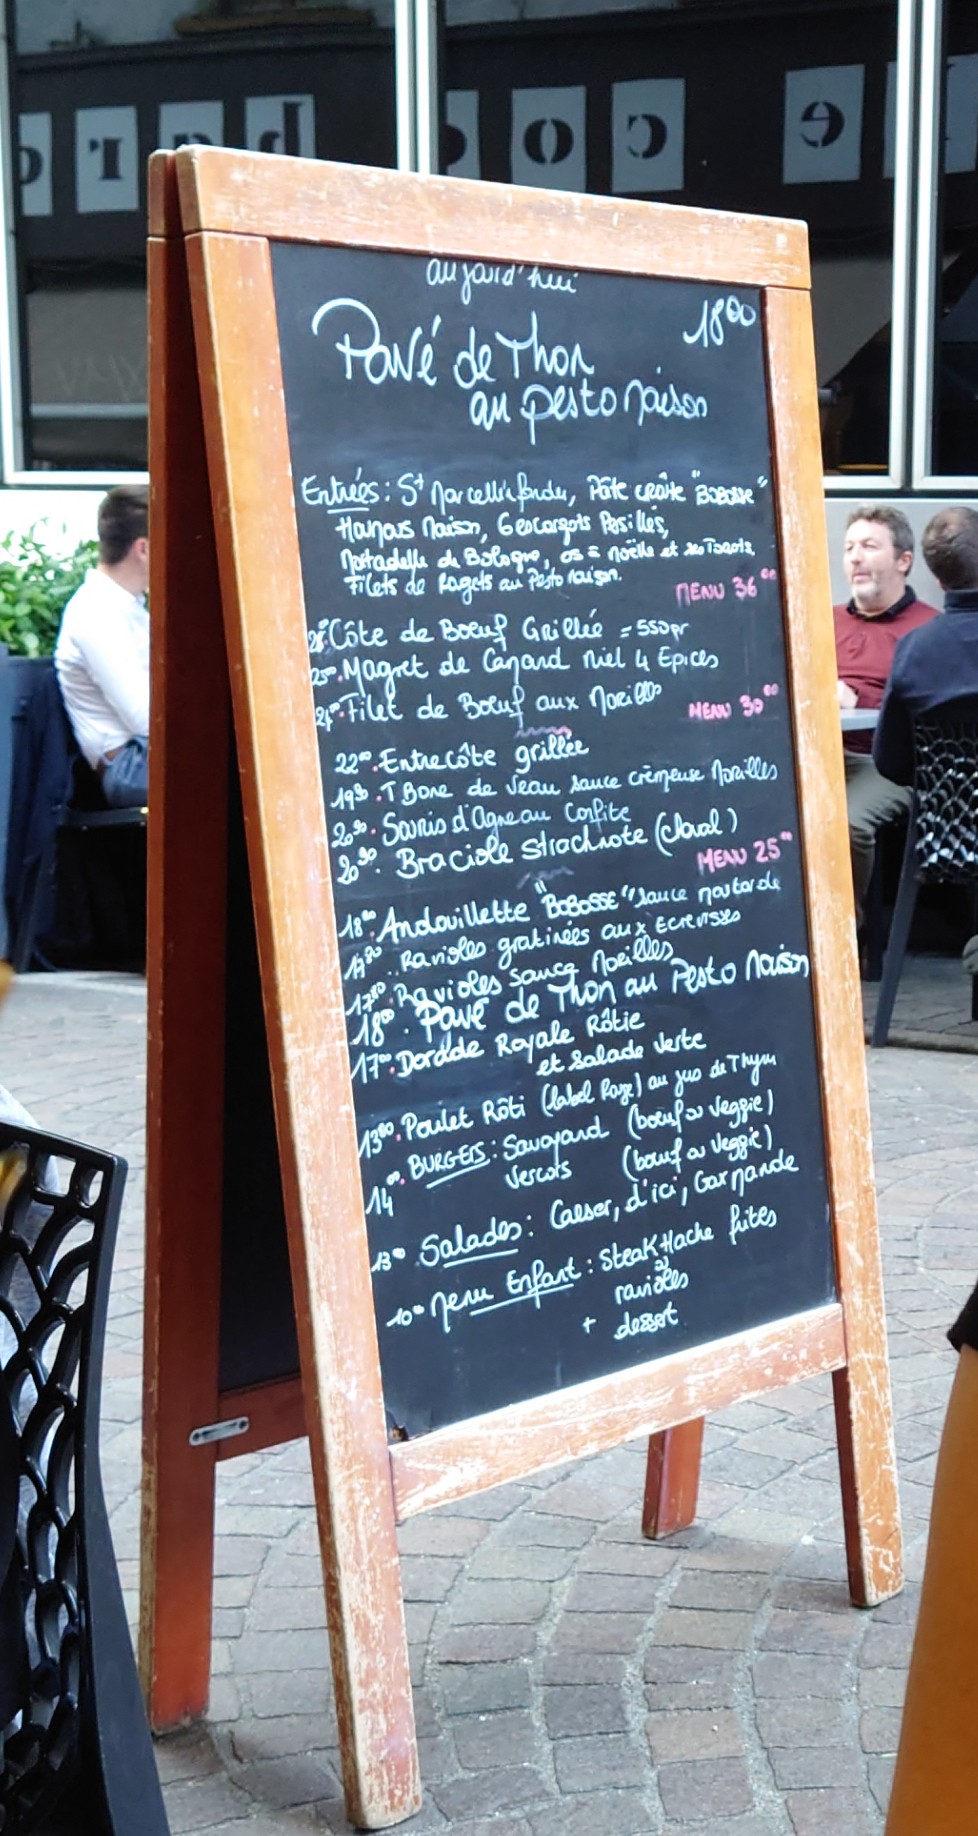 aujourd'hui
18⁰⁰
Pavé de Thon
au pesto Maison
Entrées: St Marcellin fondu, Pâté croûte "BOBOSSE"
Houmous Maison, 6 escargots Persillés,
Mortadella de Bologne, os = moëlle et ses Toasts,
Filets de Rougets au Pesto Maison.
MENU 36⁰⁰
28⁰⁰. Côte de Boeuf Grillée = 550gr
25⁰⁰. Magret de Canard Miel 4 Epices
24⁰⁰. Filet de Boeuf aux Morilles
MENU 30⁰⁰
22⁰⁰. Entrecôte grillée
19⁵⁰. T Bone de Veau sauce crèmeuse Morilles
20⁵⁰. Souris d'Agneau Confite
20⁵⁰. Braciole (cheval)
MENU 25⁰⁰
18⁰⁰. Andouillette "BOBOSSE" sauce moutarde
Ravioles gratinées aux Ecrevisses
17⁸⁰. Ravioles sauce Morilles
18⁰⁰. Pavé de Thon au Pesto Maison
17⁰⁰. Dorade Royale Rôtie
et Salade verte
13⁸⁰. Poulet Rôti (label Rouge) au jus de Thym
14⁰⁰. BURGERS: Savoyard (boeuf ou veggie)
Vercors (boeuf ou veggie)
13⁰⁰. Salades: Caeser, d'ici, Gourmande
10⁰⁰ Menu Enfant: Steak Haché frites
ou
ravioles
+ dessert